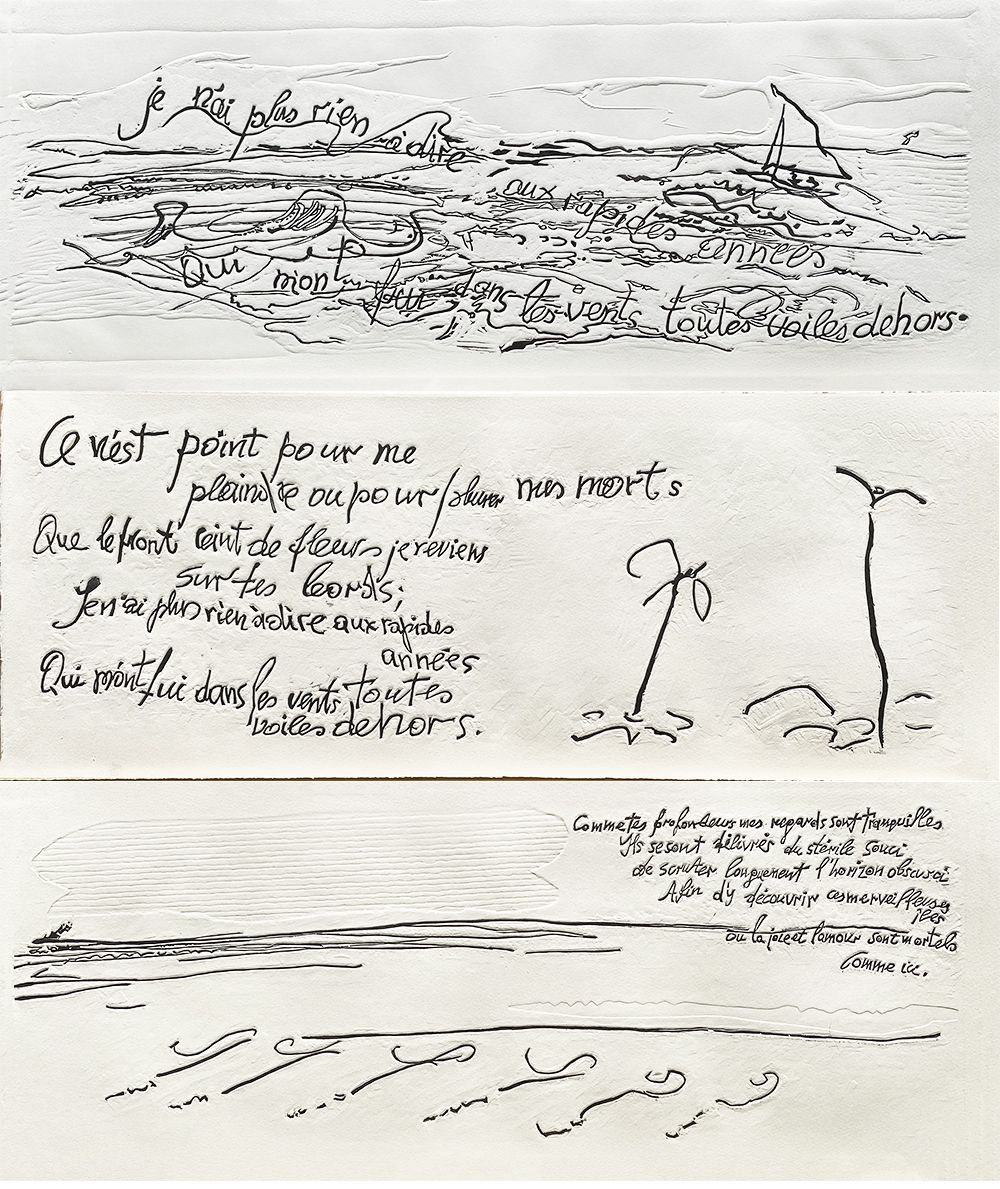 je n'ai plus rien à dire
aux rapides années
Qui m'ont fui dans les vents toutes voiles dehors.
Ce n'est point pour me
plaindre ou pour pleurer mes morts
Que le front ceint de fleurs je reviens
sur tes bords;
Je n'ai plus rien à dire aux rapides
années
Qui m'ont fui dans les vents, toutes
voiles dehors.
Comme tes profondeurs mes regards sont tranquilles
Ils se sont délivrés du stérile souci
de scruter longuement l'horizon obscurci
Afin d'y découvrir ces merveilleuses
îles
où la joie et l'amour sont mortels
Comme ici.